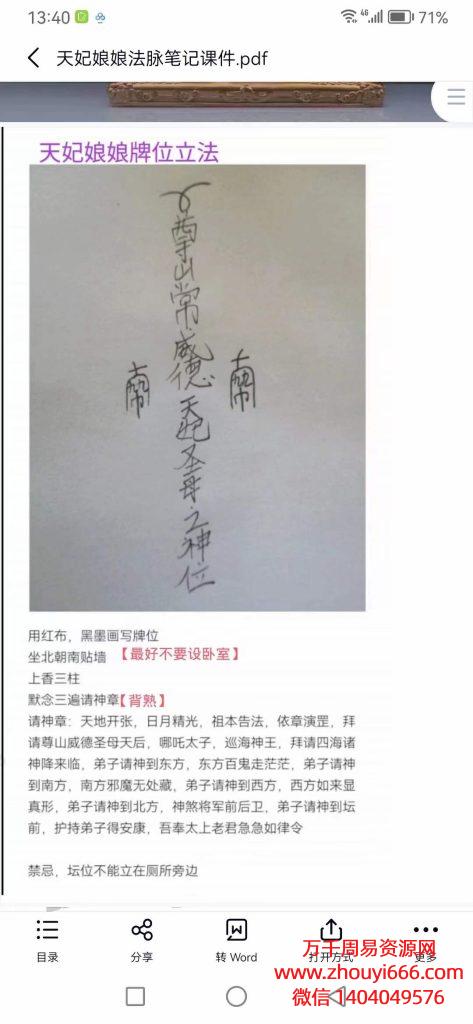 13:40
4G
71%
天妃娘娘法脉笔记课件.pdf
天妃娘娘牌位立法
尊山常威德天妃圣母之神位
用红布，黑墨画写牌位
坐北朝南贴墙 【最好不要设卧室】
上香三柱
默念三遍请神章【背熟】
请神章：天地开张，日月精光，祖本告法，依章演罡，拜
请尊山威德圣母天后，哪吒太子，巡海神王，拜请四海诸
神降来临，弟子请神到东方，东方百鬼走茫茫，弟子请神
到南方，南方邪魔无处藏，弟子请神到西方，西方如来显
真形，弟子请神到北方，神煞将军前后卫，弟子请神到坛
前，护持弟子得安康，吾奉太上老君急急如律令
禁忌，坛位不能立在厕所旁边
目录
分享
转 Word
打开方式
更多
万丰周易资源网
www.zhouyi666.com
微信1404049576